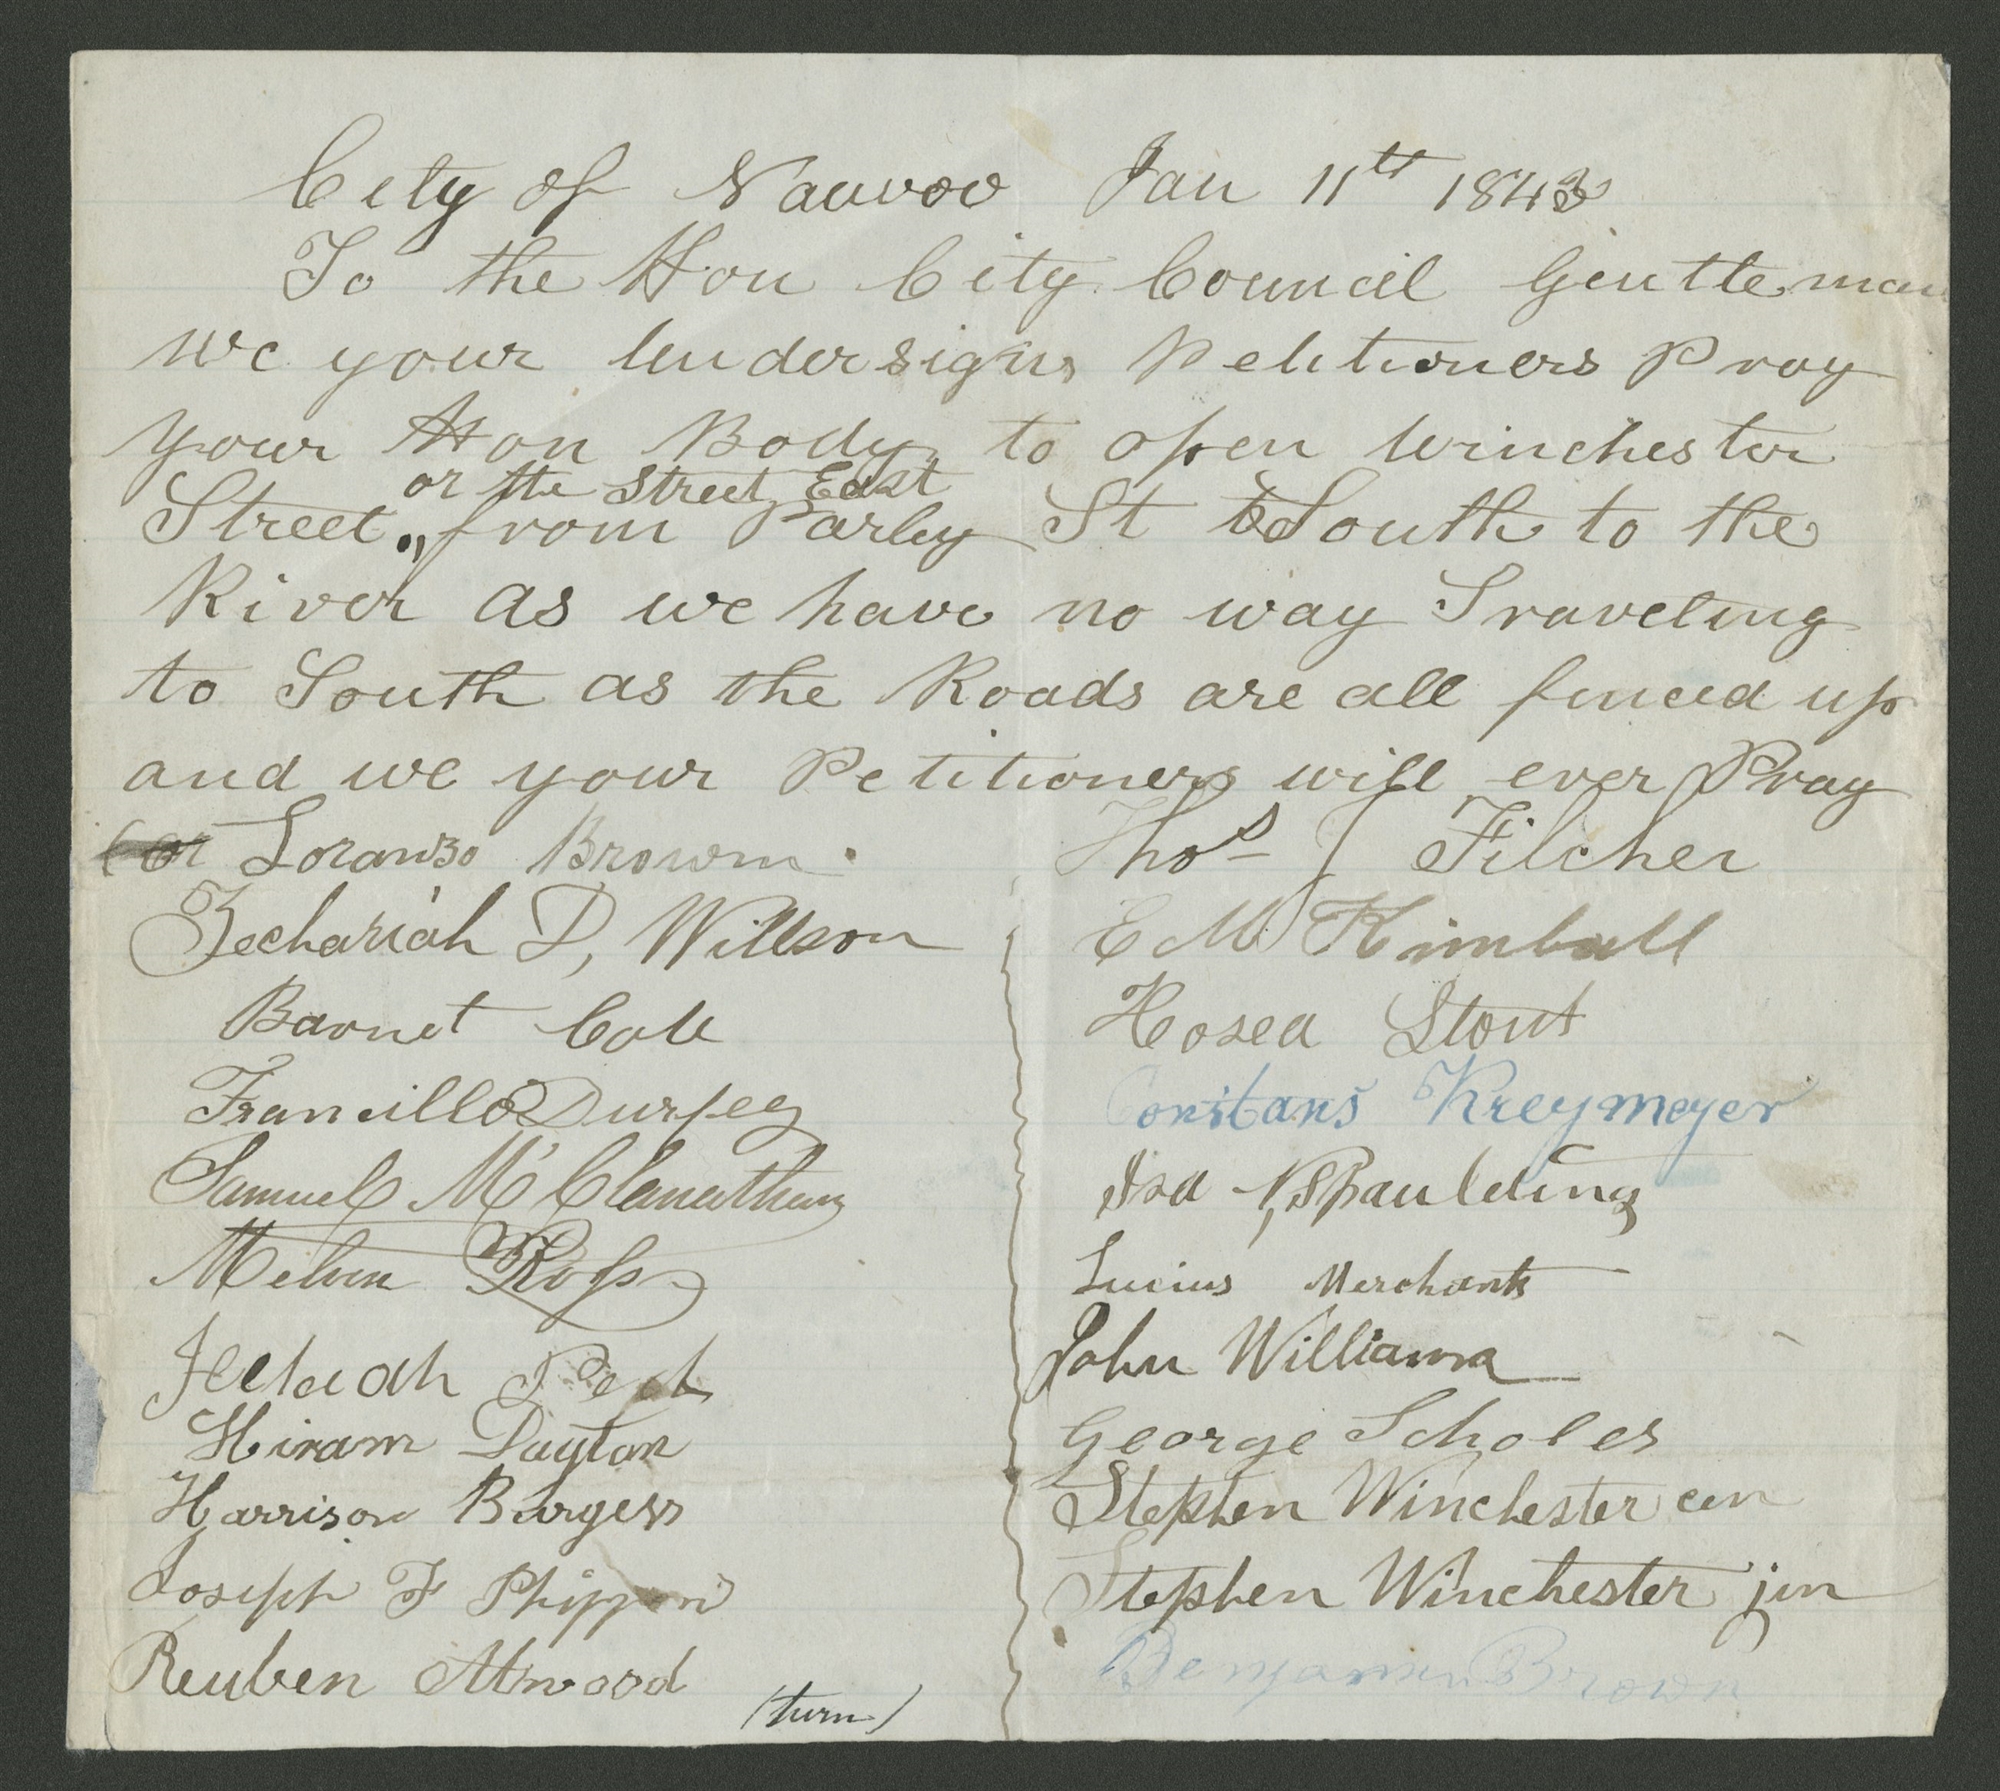 City of Nauvoo Jan 11th 1843
To the Hon City Council Gentleman
we your undersigns Petitioners Pray
your Hon Body to open Winchester
or the Street East
Street from Parley St South to the
River as we have no way Traveling
to South as the Roads are all fenced up
and we your Petitioners will ever Pray
Loranzo Brown
Thos J Filcher
Zechariah D, Willson
E M Kimball
Barnet Cole
Hosea Stout
Francillo Durfey
Constans Kreymeyer
Samuel McClanathan
Isa N Spaulding
Melvin Ross
Lucius Merchants
John Williams
Hiram Dayton
George Scholes
Harrison Burgess
Stephen Winchester cen
Joseph F Phippen
Stephen Winchester jun
Reuben Atwood
Benjamin Brown
(turn)